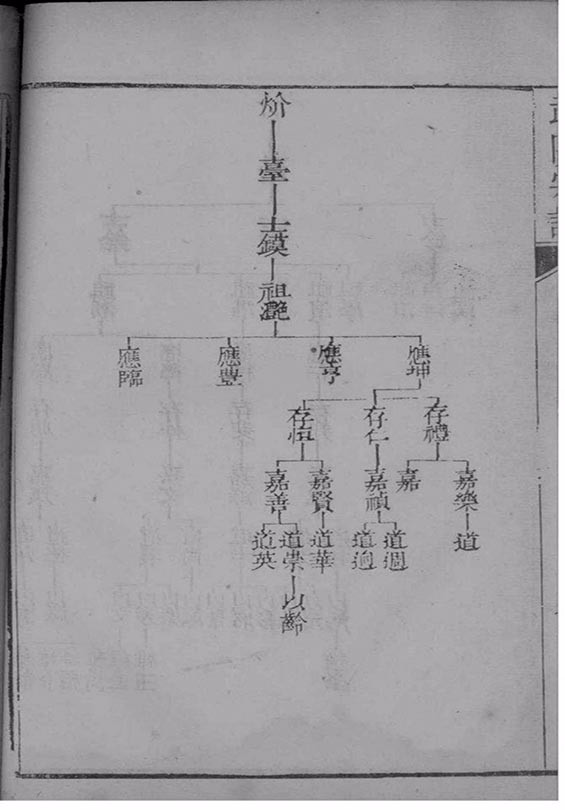 炌
臺
士鏌
祖灔
應坤
應亨
應豊
應臨
存禮
存仁
存恒
嘉樂
嘉
嘉禎
嘉賢
嘉善
道
道週
道迵
道華
道崇
道英
以齡